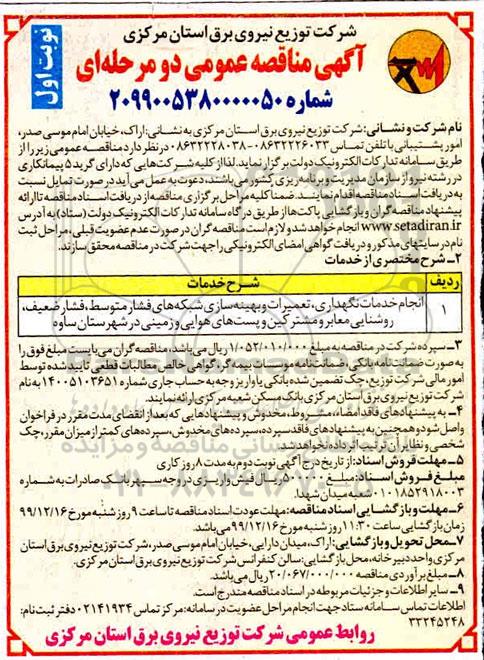 شرکت توزیع نیروی برق استان مرکزی
نوبت اول
آگهی مناقصه عمومی دو مرحله‌ای
شماره ۲۰۹۹۰۰۵۳۸۰۰۰۰۰۵۰
نام شرکت و نشانی: شرکت توزیع نیروی برق استان مرکزی به نشانی: اراک، خیابان امام موسی صدر،
امور پشتیبانی با تلفن تماس ۰۸۶۳۲۲۲۶۰۳۳-۰۸۶۳۲۲۲۸۰۳۸ در نظر دارد مناقصه عمومی زیر را از
طریق سامانه تدارکات الکترونیک دولت برگزار نماید. لذا از کلیه شرکت‌هایی که دارای گرید ۵ پیمانکاری
در رشته نیرو از سازمان مدیریت و برنامه‌ریزی کشور می‌باشند، دعوت به عمل می‌آید در صورت تمایل نسبت
به دریافت اسناد مناقصه اقدام نمایند. ضمنا کلیه مراحل برگزاری مناقصه از دریافت اسناد مناقصه تا ارائه
پیشنهاد مناقصه‌گران و بازگشایی پاکت‌ها از طریق درگاه سامانه تدارکات الکترونیک دولت (ستاد) به آدرس
www.setadiran.ir انجام خواهد شد و لازم است مناقصه‌گران در صورت عدم عضویت قبلی، مراحل ثبت
نام در سایتهای مذکور و دریافت گواهی امضای الکترونیکی را جهت شرکت در مناقصه محقق سازند.
۲- شرح مختصری از خدمات
ردیف شرح خدمات
۱ انجام خدمات نگهداری، تعمیرات و بهینه‌سازی شبکه‌های فشار متوسط، فشار ضعیف،
روشنایی معابر و مشترکین و پست‌های هوایی و زمینی در شهرستان ساوه
۳- سپرده شرکت در مناقصه به مبلغ ۱/۰۵۲/۰۱۰/۰۰۰ ریال می‌باشد، مناقصه‌گران می‌بایست مبلغ فوق را
به صورت ضمانت‌نامه بانکی، ضمانت‌نامه موسسات بیمه‌گر، گواهی خالص مطالبات قطعی تایید شده توسط
امور مالی شرکت توزیع، چک تضمین شده بانکی یا واریز وجه به حساب جاری شماره ۱۴۰۰۵۱۰۳۶۵۱ به نام
شرکت توزیع نیروی برق استان مرکزی بانک مسکن شعبه مرکزی ارائه نمایند.
۴- به پیشنهادهای فاقد امضاء، مشروط، مخدوش و پیشنهادهایی که بعد از انقضای مدت مقرر در فراخوان
واصل شود و همچنین به پیشنهادهای فاقد سپرده، سپرده‌های مخدوش، سپرده‌های کمتر از میزان مقرر، چک
شخصی و نظایر آن ترتیب اثر داده نخواهد شد.
۵- مهلت فروش اسناد: از تاریخ درج آگهی نوبت دوم به مدت ۸ روز کاری
مبلغ فروش اسناد: مبلغ ۵۰۰/۰۰۰ ریال فیش واریزی در وجه سپهر بانک صادرات به شماره
۰۱۰۱۸۵۲۹۱۸۰۰۳ شعبه میدان شهدا.
۶- مهلت و بازگشایی اسناد مناقصه: مهلت عودت اسناد مناقصه تا ساعت ۹ روز شنبه مورخ ۹۹/۱۲/۱۶
زمان بازگشایی ساعت ۱۱:۳۰ روز شنبه مورخ ۹۹/۱۲/۱۶ می‌باشد.
۷- محل تحویل و بازگشایی: اراک، میدان دارایی، خیابان امام موسی صدر، شرکت توزیع نیروی برق استان
مرکزی واحد دبیرخانه، محل بازگشایی: سالن کنفرانس شرکت توزیع نیروی برق استان مرکزی.
۸- مبلغ برآوردی مناقصه ۲۰/۰۶۷/۰۰۰/۰۰۰ ریال می‌باشد.
۹- سایر اطلاعات و جزئیات مربوطه در اسناد مناقصه مندرج است.
اطلاعات تماس سامانه ستاد جهت انجام مراحل عضویت در سامانه: مرکز تماس ۰۲۱۴۱۹۳۴ دفتر ثبت نام:
۳۳۲۴۵۲۴۸
روابط عمومی شرکت توزیع نیروی برق استان مرکزی